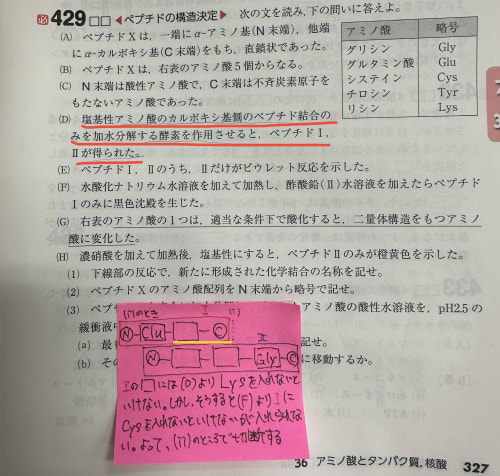 必 429 □□ ◀ペプチドの構造決定▶ 次の文を読み, 下の問いに答えよ。
(A) ペプチドXは, 一端にα-アミノ基(N末端), 他端
にα-カルボキシ基(C末端)をもち, 直鎖状であった。
(B) ペプチドXは, 右表のアミノ酸5個からなる。
(C) N末端は酸性アミノ酸で, C末端は不斉炭素原子を
もたないアミノ酸であった。
(D) 塩基性アミノ酸のカルボキシ基側のペプチド結合の
みを加水分解する酵素を作用させると, ペプチドⅠ,
Ⅱが得られた。
アミノ酸 略号
グリシン Gly
グルタミン酸 Glu
システイン Cys
チロシン Tyr
リシン Lys
(E) ペプチドⅠ, Ⅱのうち, Ⅱだけがビウレット反応を示した。
(F) 水酸化ナトリウム水溶液を加えて加熱し, 酢酸鉛(Ⅱ)水溶液を加えたらペプチド
Ⅰのみに黒色沈殿を生じた。
(G) 右表のアミノ酸の1つは, 適当な条件下で酸化すると, 二量体構造をもつアミノ
酸に変化した。
(H) 濃硝酸を加えて加熱後, 塩基性にすると, ペプチドⅡのみが橙黄色を示した。
(1) 下線部の反応で, 新たに形成された化学結合の名称を記せ。
(2) ペプチドXのアミノ酸配列をN末端から略号で記せ。
(3)
アミノ酸の酸性水溶液を, pH2.5の
緩衝液
(a) 最
記せ。
(b) その
に移動するか。
のとき Ⅰ
N Glu C
Ⅱ
N Gly C
Ⅰの□には(D)よりLysを入れないと
いけない。しかし、そうすると(F)よりⅠに
Cysを入れないといけないが入れられな
い。よって、のところで切断する
36 アミノ酸とタンパク質, 核酸 327